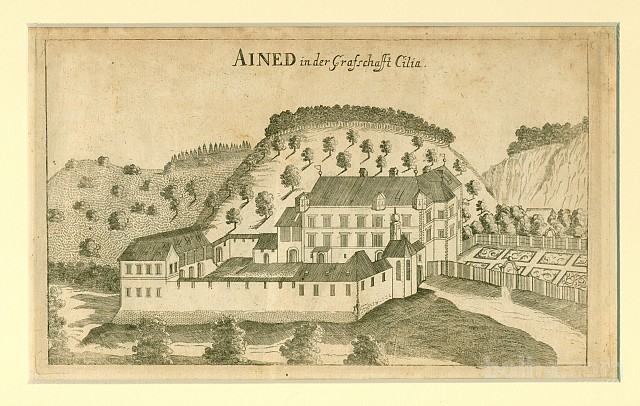 AINED in der Grafschafft Cilia.